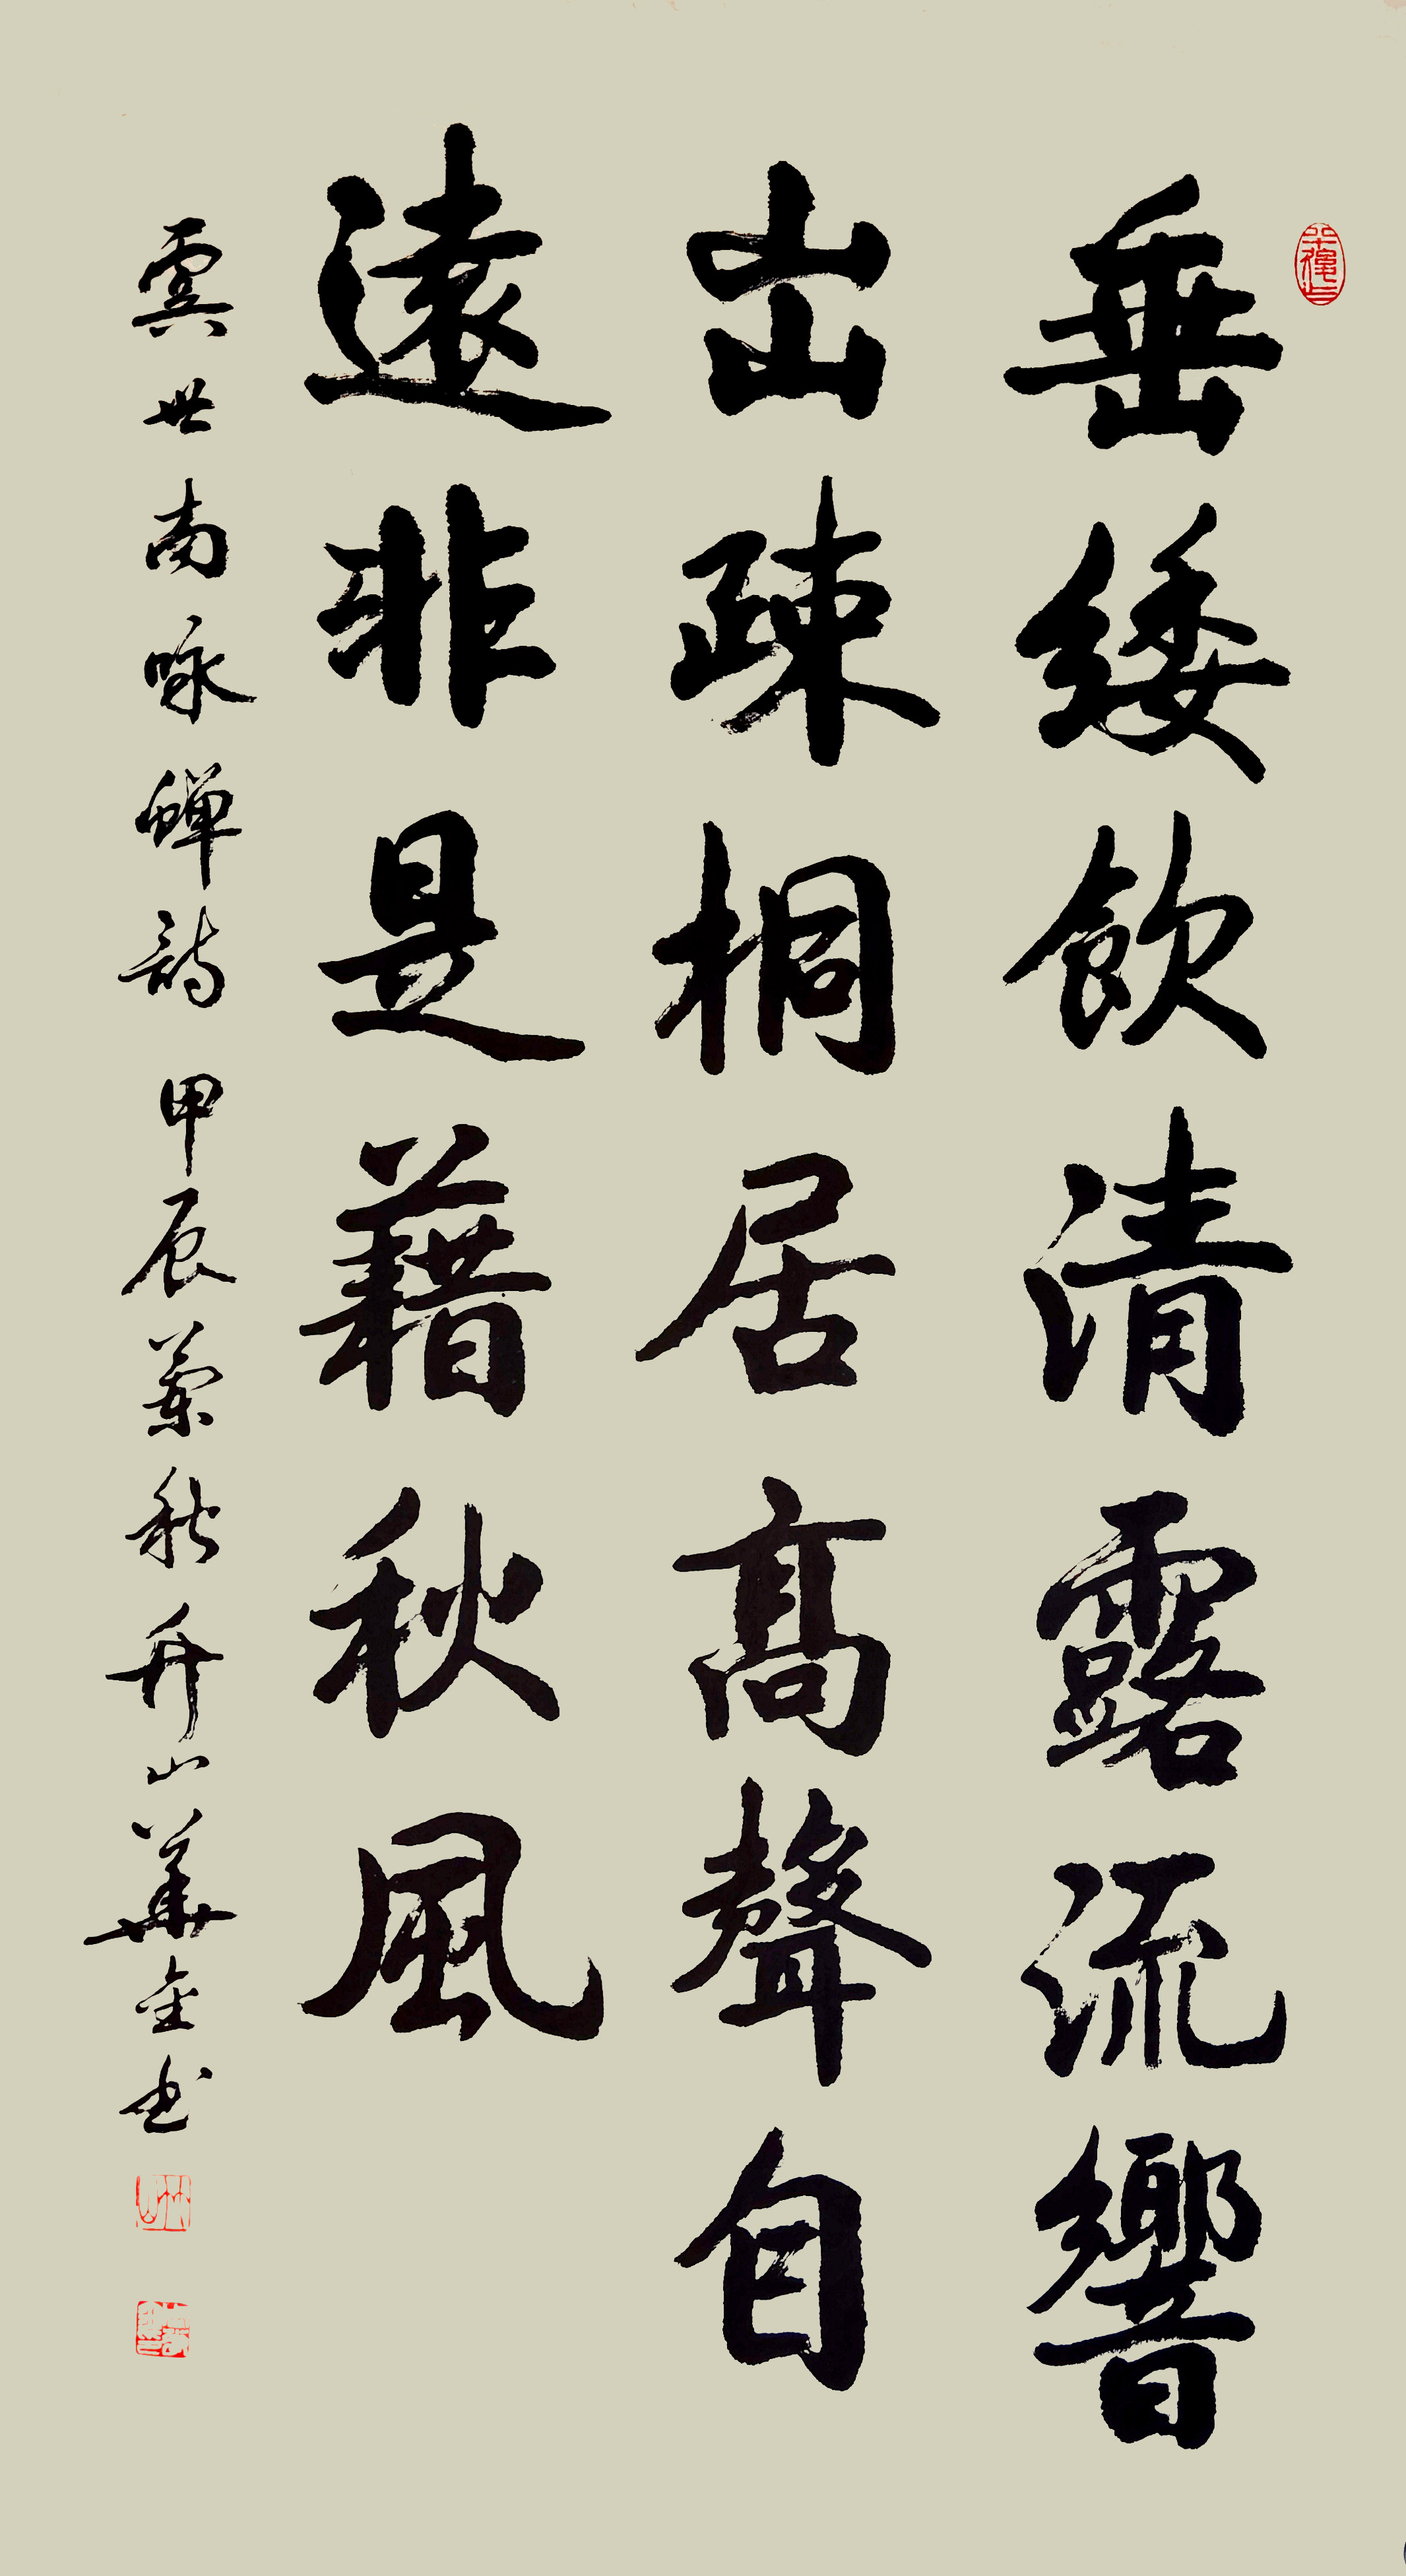 垂緌飲清露流響
出疎桐居高聲自
遠非是藉秋風
虞世南咏蟬詩 甲辰蘭秋 升山華金书